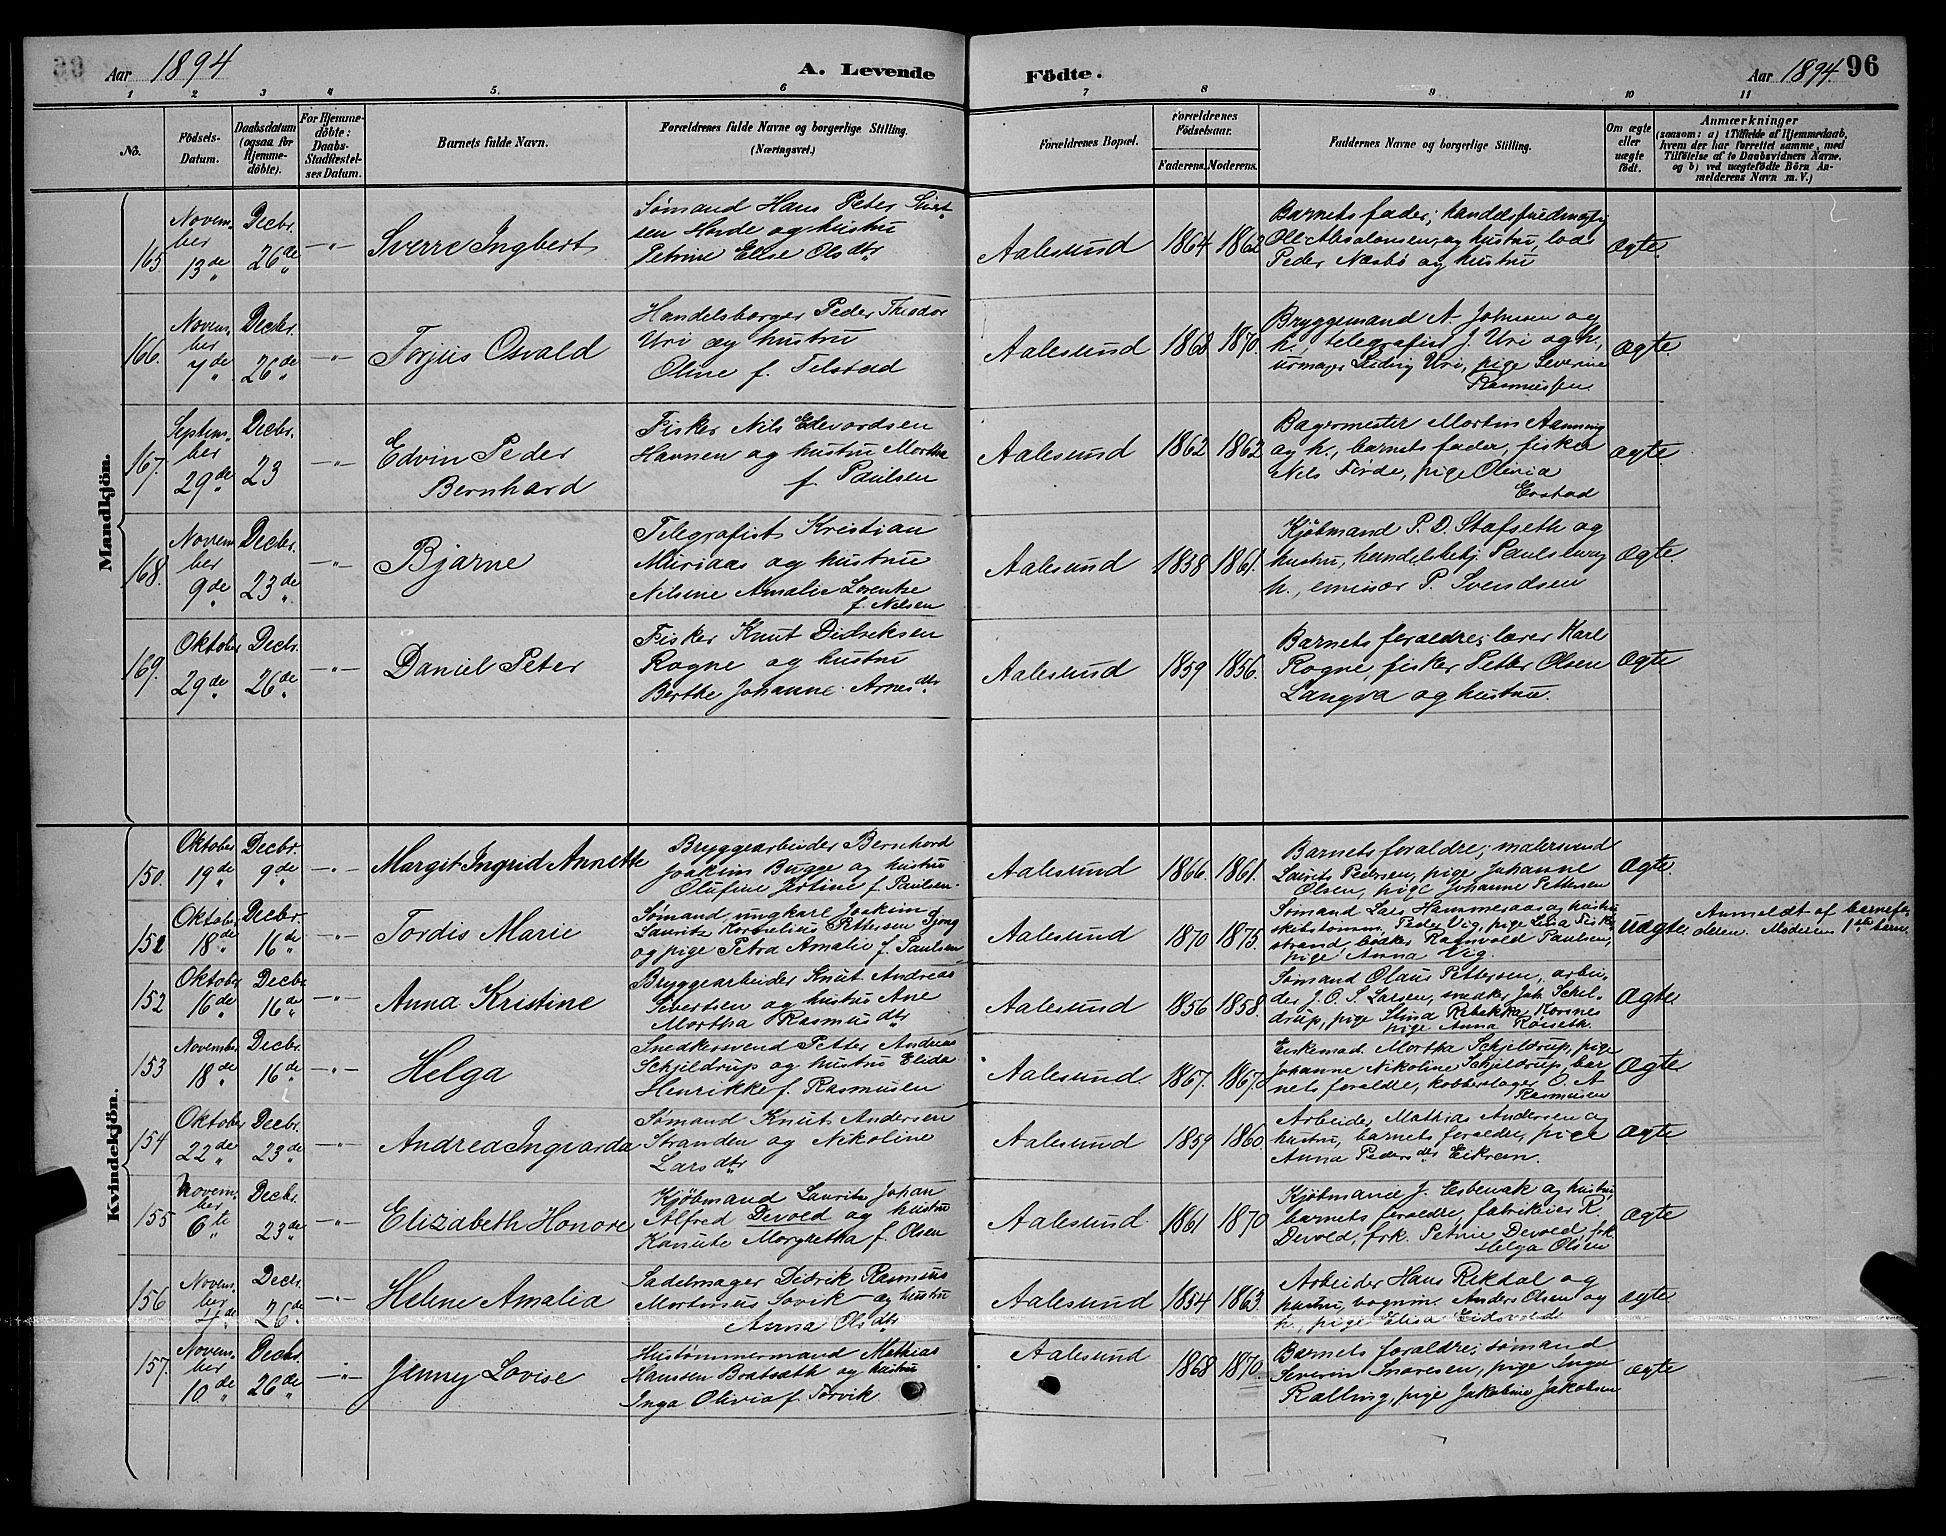 Aar 1894
A. Levende
Födte.
Aar 1894.
96
1 2 3 4 5. 6 7 8 9 10 11
No.
Födsels-
Datum.
Daabsdatum
(ogsaa for
Hjemme-
döbte).
For Hjemme-
döbte:
Daabs-
Stadfæstel-
ses Datum.
Barnets fulde Navn.
Forældrenes fulde Navne og borgerlige Stilling.
(Næringsvei.)
Forældrenes Bopæl.
Forældrenes
Födselsaar.
Faderens. Moderens.
Faddernes Navne og borgerlige Stilling.
Om ægte
eller
uægte
födt.
Anmærkninger
(saasom: a) i Tilfælde af Hjemmedaab,
hvem der har forrettet samme, med
Tilföielse af to Daabsvidners Navne.
og b) ved uægtefödte Börn An-
melderens Navn m. V.)
Mandkjön.
165.
Novem-
ber
13de
Decbr.
26de
-"-
Sverre Ingbert
Sømand Hans Peter Sivert-
sen Horde og hustru
Petrine Elise Olsdtr
Aalesund
1864
1862
Barnets fader; handelsfuldmægtig
Ole Absalonsen og hustru, lods
Peder Næsbø og hustru
Ægte.
166.
Novem-
ber
7de
Decbr.
26de
-"-
Torjus Osvald
Handelsborger Peder Theodor
Uri og hustru
Oline f. Tilstad
Aalesund
1863
1870.
Bryggemand A. Johnsen og
h., telegrafist J. Uri og h.,
urmager Ludvig Uri, pige Severine
Rasmussen
Ægte.
167.
Septem-
ber
29de
Decbr.
23
-"-
Edvin Peder
Bernhard
Fisker Nils Edvardsen
Havnen og hustru Martha
f Paulsen
Aalesund
1862
1862
Bagermester Martin Aanning
og h., barnets fader, fisker
Nils Førde, pige Olivia
Ægte.
168.
Novem
ber
9de
Decbr.
23de
-"-
Bjarne
Telegrafist Kristian
Muriaas og hustru
Nilsine Amalie Lorentze
f. Nilsen
Aalesund
1838
1861.
Kjøbmand P. D. Stafseth og
hustru, handelsbetj. Paulsberg
h., emisær P. Svendsen
Ægte.
169.
Oktober
29de
Decbr.
26de
-"-
Daniel Peter
Fisker Knut Didriksen
Rogne og hustru
Berthe Johanne Arnesdtr.
Aalesund
1859
1856.
Barnets foraldre; lærer Karl
Rogne, fisker Petter Olsen
Langva og hustru.
Ægte
Kvindekjön.
150.
Oktober
19de
Decbr.
9de
-"-
Margit Ingrid Annette
Bryggearbeider Bernhard
Joakim Bugge og hustru
Olufine Jertine f. Paulsen.
Aalesund
1866.
1861.
Barnets foraldre; malersvend
Laurits Pedersen, pige Johanne
Olsen, pige Johanne Pettersen
Ægte.
151
Oktober
18de
Decbr.
16de
-"-
Tordis Marie
Sømand, ungkarl Joakim
Lauritz Kornelius Pettersen
og pige Petra Amalie f. Paulsen
Aalesund
1870
1875.
Sømand Lars Hammeraas og hustru
skibstømm. Peder Vig, pige Lina Fisk-
strand, bødker Ragnvald Paulsen,
pige Anna Vig.
Uægte.
Anmeldt af barnefa-
deren. Moderens 1ste barn.
152
Oktober
16de
Decbr.
16de
-"-
Anna Kristine
Bryggearbeider Knut Andreas
Sivertsen og hustru Ane
Martha Rasmusdtr
Aalesund
1856
1858.
Sømand Olaus Pettersen, arbei-
der J. O. S. Larsen, snedker Joh. Schil-
drup, pige Stina Rebekka Korsnes
pige Anna
Ægte
153
November
18de
Decbr.
16de
-"-
Helga
Snedkersvend Petter Andreas
Schjeldrup og hustru Elida
Henrikke f. Rasmusen
Aalesund.
1867.
1867.
Enkemad. Martha Schjeldrup, pige
Johanne Nikoline Schjeldrup, bar
nets foraldre, kobberslager O. A.
Rasmusen
Ægte
154
Oktober
22de
Decbr.
23de
-"-
Andrea Ingvarda
Sømand Knut Andersen
Stranden og Nikoline
Larsdtr
Aalesund
1859
1860.
Arbeider Mathias Andersen og
hustru, barnets foraldre, pige
Anna Pedersdtr Eikrem.
Ægte
155
Novem-
ber
6te
Decbr.
23de
-"-
Elizabeth Honore
Kjøbmand Lauritz Johan
Alfred Devold og hustru
Kanute Margretha f. Olsen
Aalesund
1861
1870
Kjøbmand J. og hustru
barnets foraldre, fabrikeier R.
Devold, frk. Petrine Devold, frk.
Helga Olsen
Ægte
156
Novem-
ber
4de
Decbr.
26de
-"-
Helene Amalia
Sadelmager Didrik Rasmus
Martinus Sovik - og hustru
Anna Olsdtr
Aalesund
1854
1863.
Arbeider Hans Rekdal og
hustru, vognm. Anders Olsen og
h., pige Elisa Eidsvolds
Ægte
157.
Novem-
ber
10de
Decbr.
26de
-"-
Jenney Lovise
Hustømmermand Mathias
Hanssen Bratsæth og hustru
Inga Olivia f. Torvik
Aalesund
1868
1870.
Barnets foraldre; sømand
Severin Snoresen, pige Inga
Ralling, pige Jakobine Jakobsen
Ægte